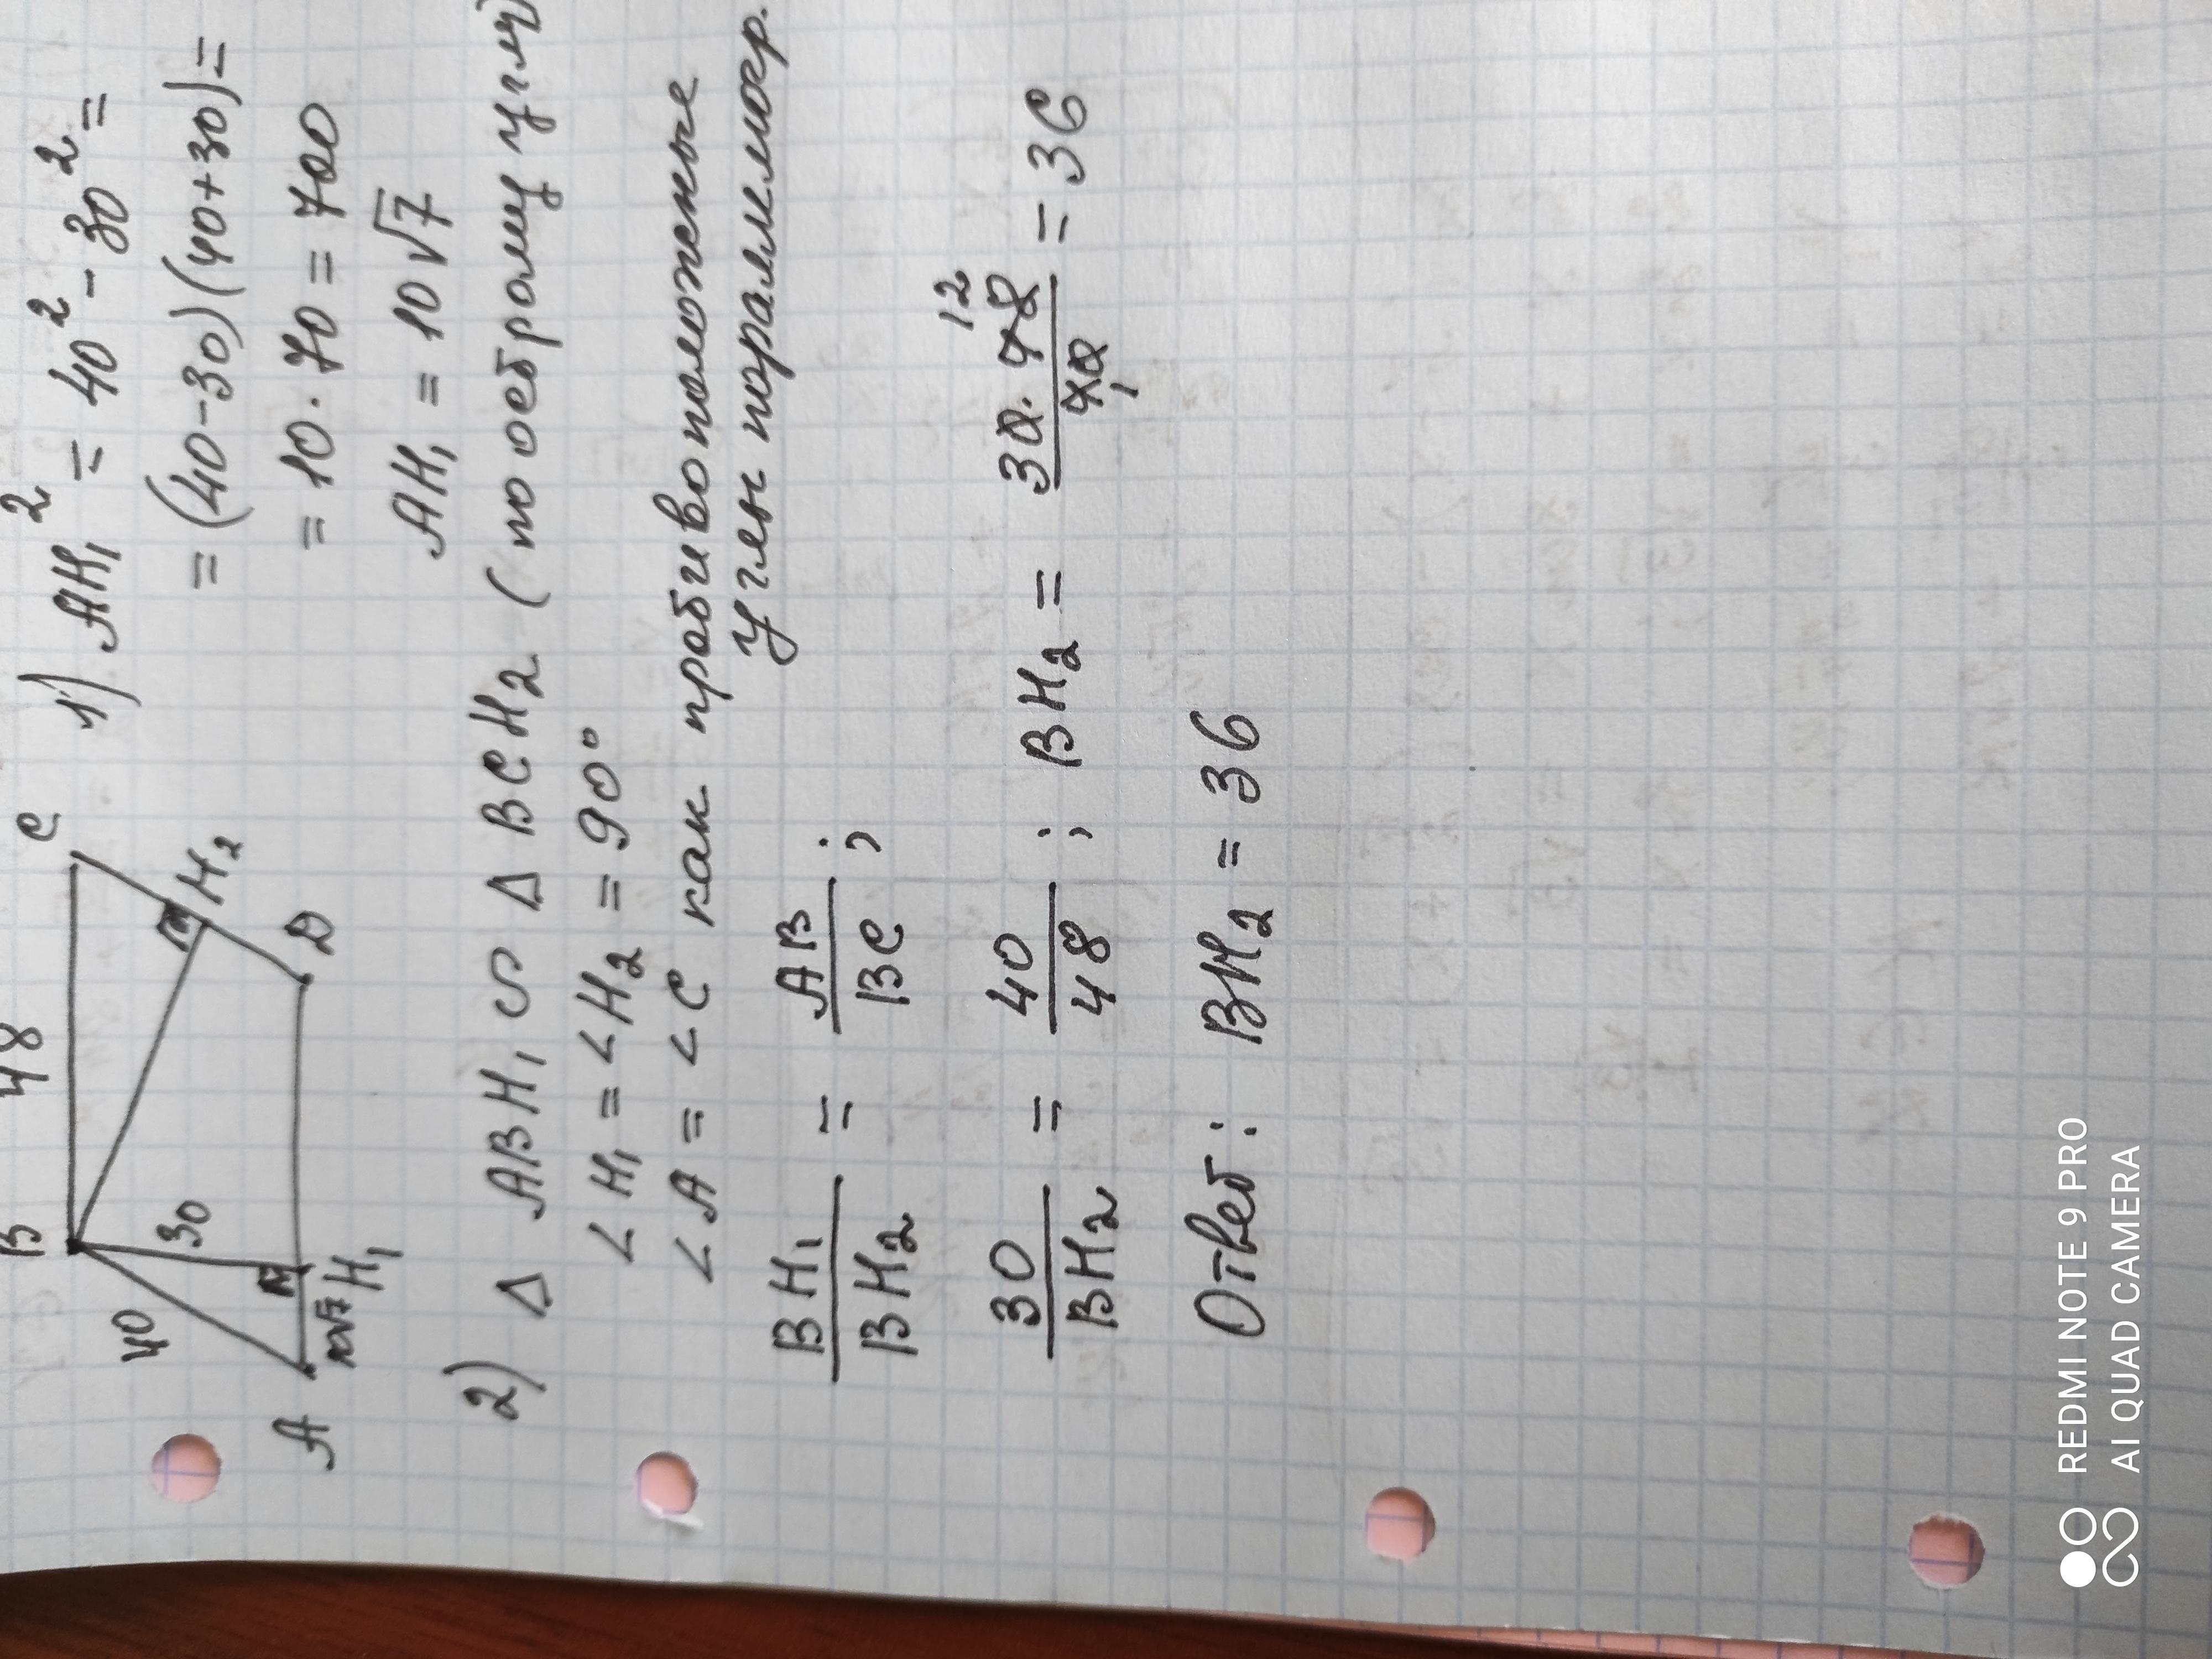 B 48 C
40
30
H₂
A 10√7 H₁ D
1) AH₁² = 40² - 30² =
= (40-30)(40+30) =
= 10 · 70 = 700
AH₁ = 10√7
2) Δ ABH₁ ∽ Δ BCH₂ (по острому углу)
∠H₁ = ∠H₂ = 90°
∠A = ∠C как противоположные
углы параллелогр.
BH₁/BH₂ = AB/BC ;
30/BH₂ = 40/48 ; BH₂ = 30 · 48 12/40 1 = 36
Ответ: BH₂ = 36
REDMI NOTE 9 PRO
AI QUAD CAMERA